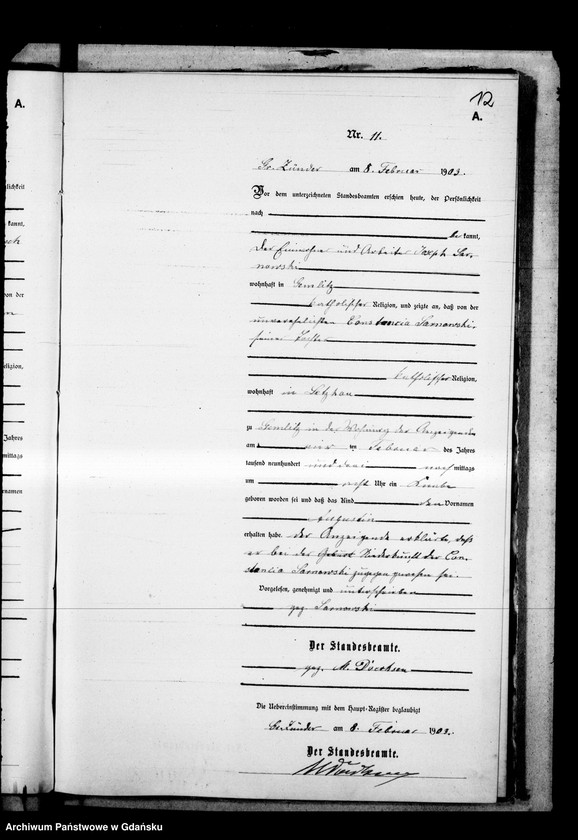 12
A.
A.
Nr. 11.
Gr. Zünder am 8. Februar 1903.
Vor dem unterzeichneten Standesbeamten erschien heute, der Persönlichkeit
nach
be kannt,
der Einwohner und Arbeiter Joseph Sar-
nowski
wohnhaft in Gemlitz
katholischer Religion, und zeigte an, daß von der
unverehelichten Constancia Sarnowski
seiner Tochter
katholischer Religion,
wohnhaft in Letzkau
zu Gemlitz in der Wohnung des Anzeigenden
am vier ten Februar des Jahres
tausend neunhundert und drei nach mittags
um acht Uhr ein Knabe
geboren worden sei und daß das Kind den Vornamen
Augustin
erhalten habe. der Anzeigende erklärte, daß
er bei der Geburt Niederkunft der Con-
stancia Sarnowski zugegen gewesen sei.
Vorgelesen, genehmigt und unterschrieben
gez. Sarnowski
Der Standesbeamte.
gez. M. Doerksen
Die Uebereinstimmung mit dem Haupt-Register beglaubigt
Gr. Zünder am 8. Februar 1903.
Der Standesbeamte.
MDoerksen
nlichkeit
kannt,
von der
eligion,
Jahres
mittags
ornamen
Archiwum Państwowe w Gdańsku